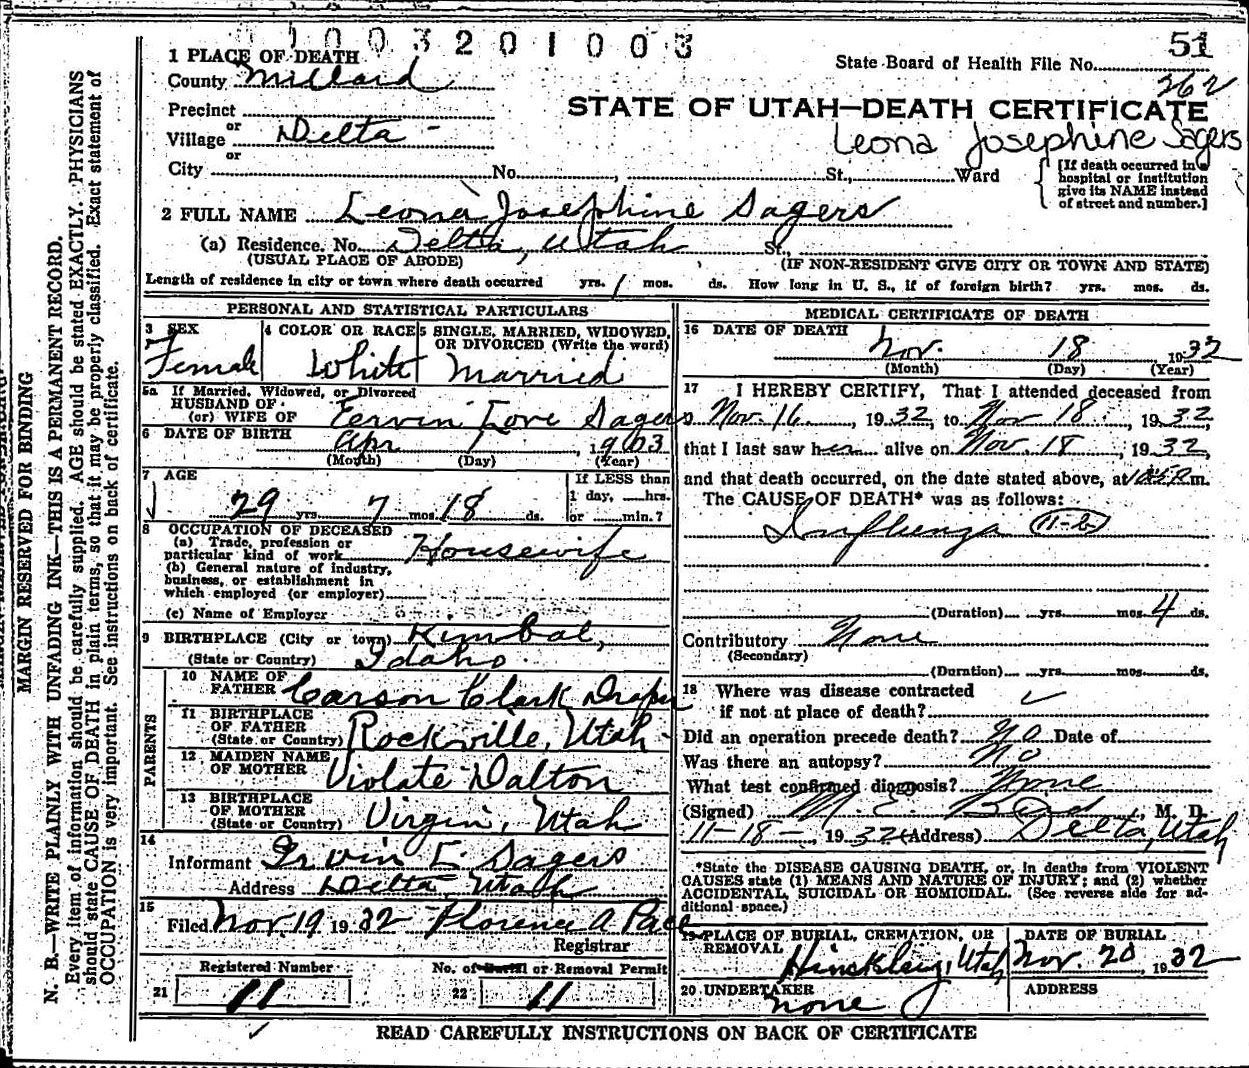 1003201003
51
1 PLACE OF DEATH
State Board of Health File No.
County Millard
262
Precinct
STATE OF UTAH—DEATH CERTIFICATE
or
Village Delta
Leona Josephine Sagers
or
City No. , St., Ward
[If death occurred in hospital or institution give its NAME instead of street and number.]
2 FULL NAME Leona Josephine Sagers
(a) Residence. No. Delta, Utah St.,
(USUAL PLACE OF ABODE) (IF NON-RESIDENT GIVE CITY OR TOWN AND STATE)
Length of residence in city or town where death occurred yrs. 1 mos. ds. How long in U. S., if of foreign birth? yrs. mos. ds.
PERSONAL AND STATISTICAL PARTICULARS
3 SEX
Female
4 COLOR OR RACE
White
5 SINGLE, MARRIED, WIDOWED, OR DIVORCED (Write the word)
Married
5a If Married, Widowed, or Divorced
HUSBAND OF
(or) WIFE OF Ervin Sagers
6 DATE OF BIRTH Apr 1, 1903
(Month) (Day) (Year)
7 AGE
29 yrs. 7 mos. 18 ds.
If LESS than
1 day, hrs.
or min.?
8 OCCUPATION OF DECEASED
(a) Trade, profession or
particular kind of work Housewife
(b) General nature of industry,
business, or establishment in
which employed (or employer)
(c) Name of Employer
9 BIRTHPLACE (City or town) Kimbal,
(State or Country) Idaho
PARENTS
10 NAME OF FATHER Carson Clark Draper
11 BIRTHPLACE OF FATHER
(State or Country) Rockville, Utah
12 MAIDEN NAME OF MOTHER Violate Dalton
13 BIRTHPLACE OF MOTHER
(State or Country) Virgin, Utah
14
Informant Irvin E. Sagers
Address Delta, Utah
15
Filed Nov. 19 1932 Florence A Pace
Registrar
Registered Number
21 11
No. of Burial or Removal Permit
22 11
MEDICAL CERTIFICATE OF DEATH
16 DATE OF DEATH
Nov. 18 1932
(Month) (Day) (Year)
17 I HEREBY CERTIFY, That I attended deceased from
Nov. 16, 1932, to Nov 18, 1932,
that I last saw her alive on Nov. 18, 1932,
and that death occurred, on the date stated above, at m.
The CAUSE OF DEATH* was as follows:
Influenza 11-b
(Duration) yrs. mos. 4 ds.
Contributory None
(Secondary)
(Duration) yrs. mos. ds.
18 Where was disease contracted
if not at place of death?
Did an operation precede death? No Date of
Was there an autopsy? No
What test confirmed diagnosis? None
(Signed) M. E. Bird, M. D.
11-18-, 1932 (Address) Delta, Utah
*State the DISEASE CAUSING DEATH, or, in deaths from VIOLENT
CAUSES state (1) MEANS AND NATURE OF INJURY; and (2) whether
ACCIDENTAL, SUICIDAL OR HOMICIDAL. (See reverse side for ad-
ditional space.)
19 PLACE OF BURIAL, CREMATION, OR REMOVAL
Hinckley, Utah
DATE OF BURIAL
Nov. 20, 1932
20 UNDERTAKER
none
ADDRESS
READ CAREFULLY INSTRUCTIONS ON BACK OF CERTIFICATE
MARGIN RESERVED FOR BINDING
N. B.—WRITE PLAINLY WITH UNFADING INK—THIS IS A PERMANENT RECORD.
Every item of information should be carefully supplied. AGE should be stated EXACTLY. PHYSICIANS
should state CAUSE OF DEATH in plain terms, so that it may be properly classified. Exact statement of
OCCUPATION is very important. See instructions on back of certificate.